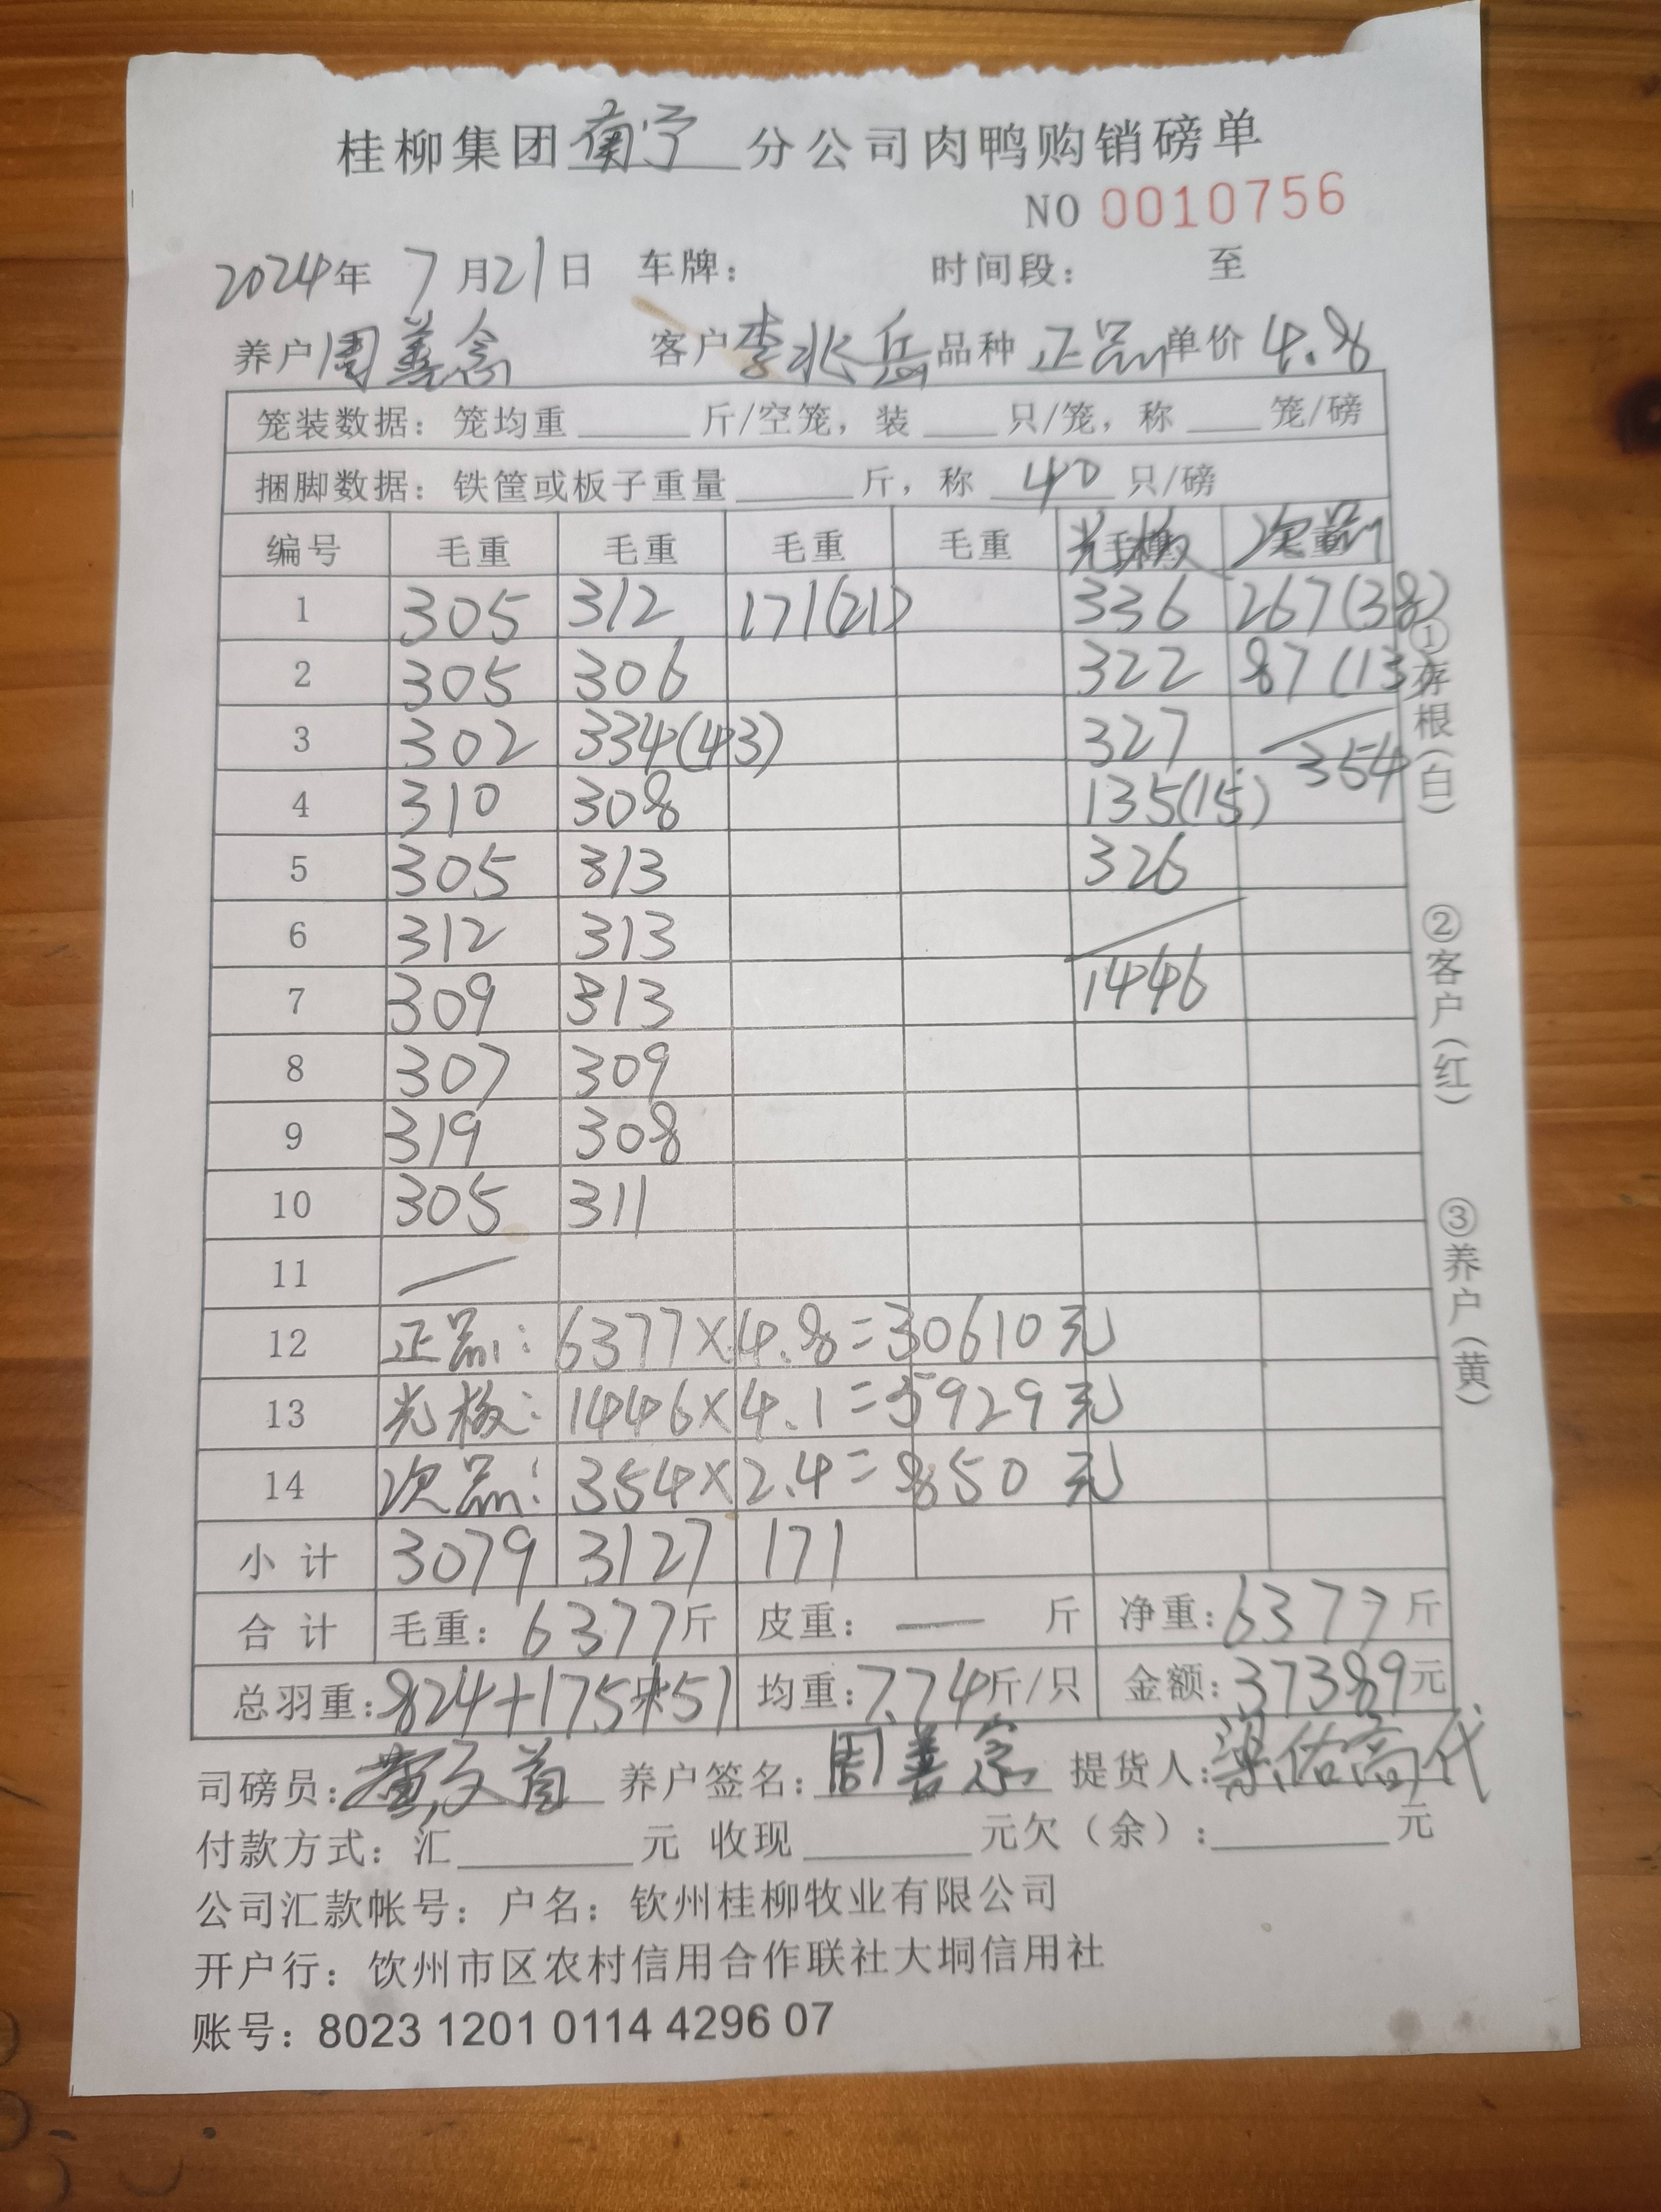 桂柳集团南宁分公司肉鸭购销磅单
NO 0010756
2024年 7月21日 车牌： 时间段： 至
养户周善念 客户李兆岳品种 正品 单价 4.8
笼装数据：笼均重______斤/空笼，装____只/笼，称____笼/磅
捆脚数据：铁筐或板子重量______斤，称 40 只/磅
编号 毛重 毛重 毛重 毛重 光板 次品
1 305 312 171(21) 336 267(38)
2 305 306 322 87(13)
3 302 334(43) 327 354
4 310 308 135(15)
5 305 313 326
6 312 313
7 309 313 1446
8 307 309
9 319 308
10 305 311
11 —
12 正品：6377×4.8=30610元
13 光板：1446×4.1=5929元
14 次品：354×2.4=850元
小计 3079 3127 171
合计 毛重：6377斤 皮重：— 斤 净重：6377斤
总羽重：824+175+51 均重：7.74斤/只 金额：37389元
司磅员： 养户签名：周善 提货人：梁佑高代
付款方式：汇______元 收现______元欠（余）：______元
公司汇款帐号：户名：钦州桂柳牧业有限公司
开户行：饮州市区农村信用合作联社大垌信用社
账号：8023 1201 0114 4296 07
①存根（白）
②客户（红）
③养户（黄）